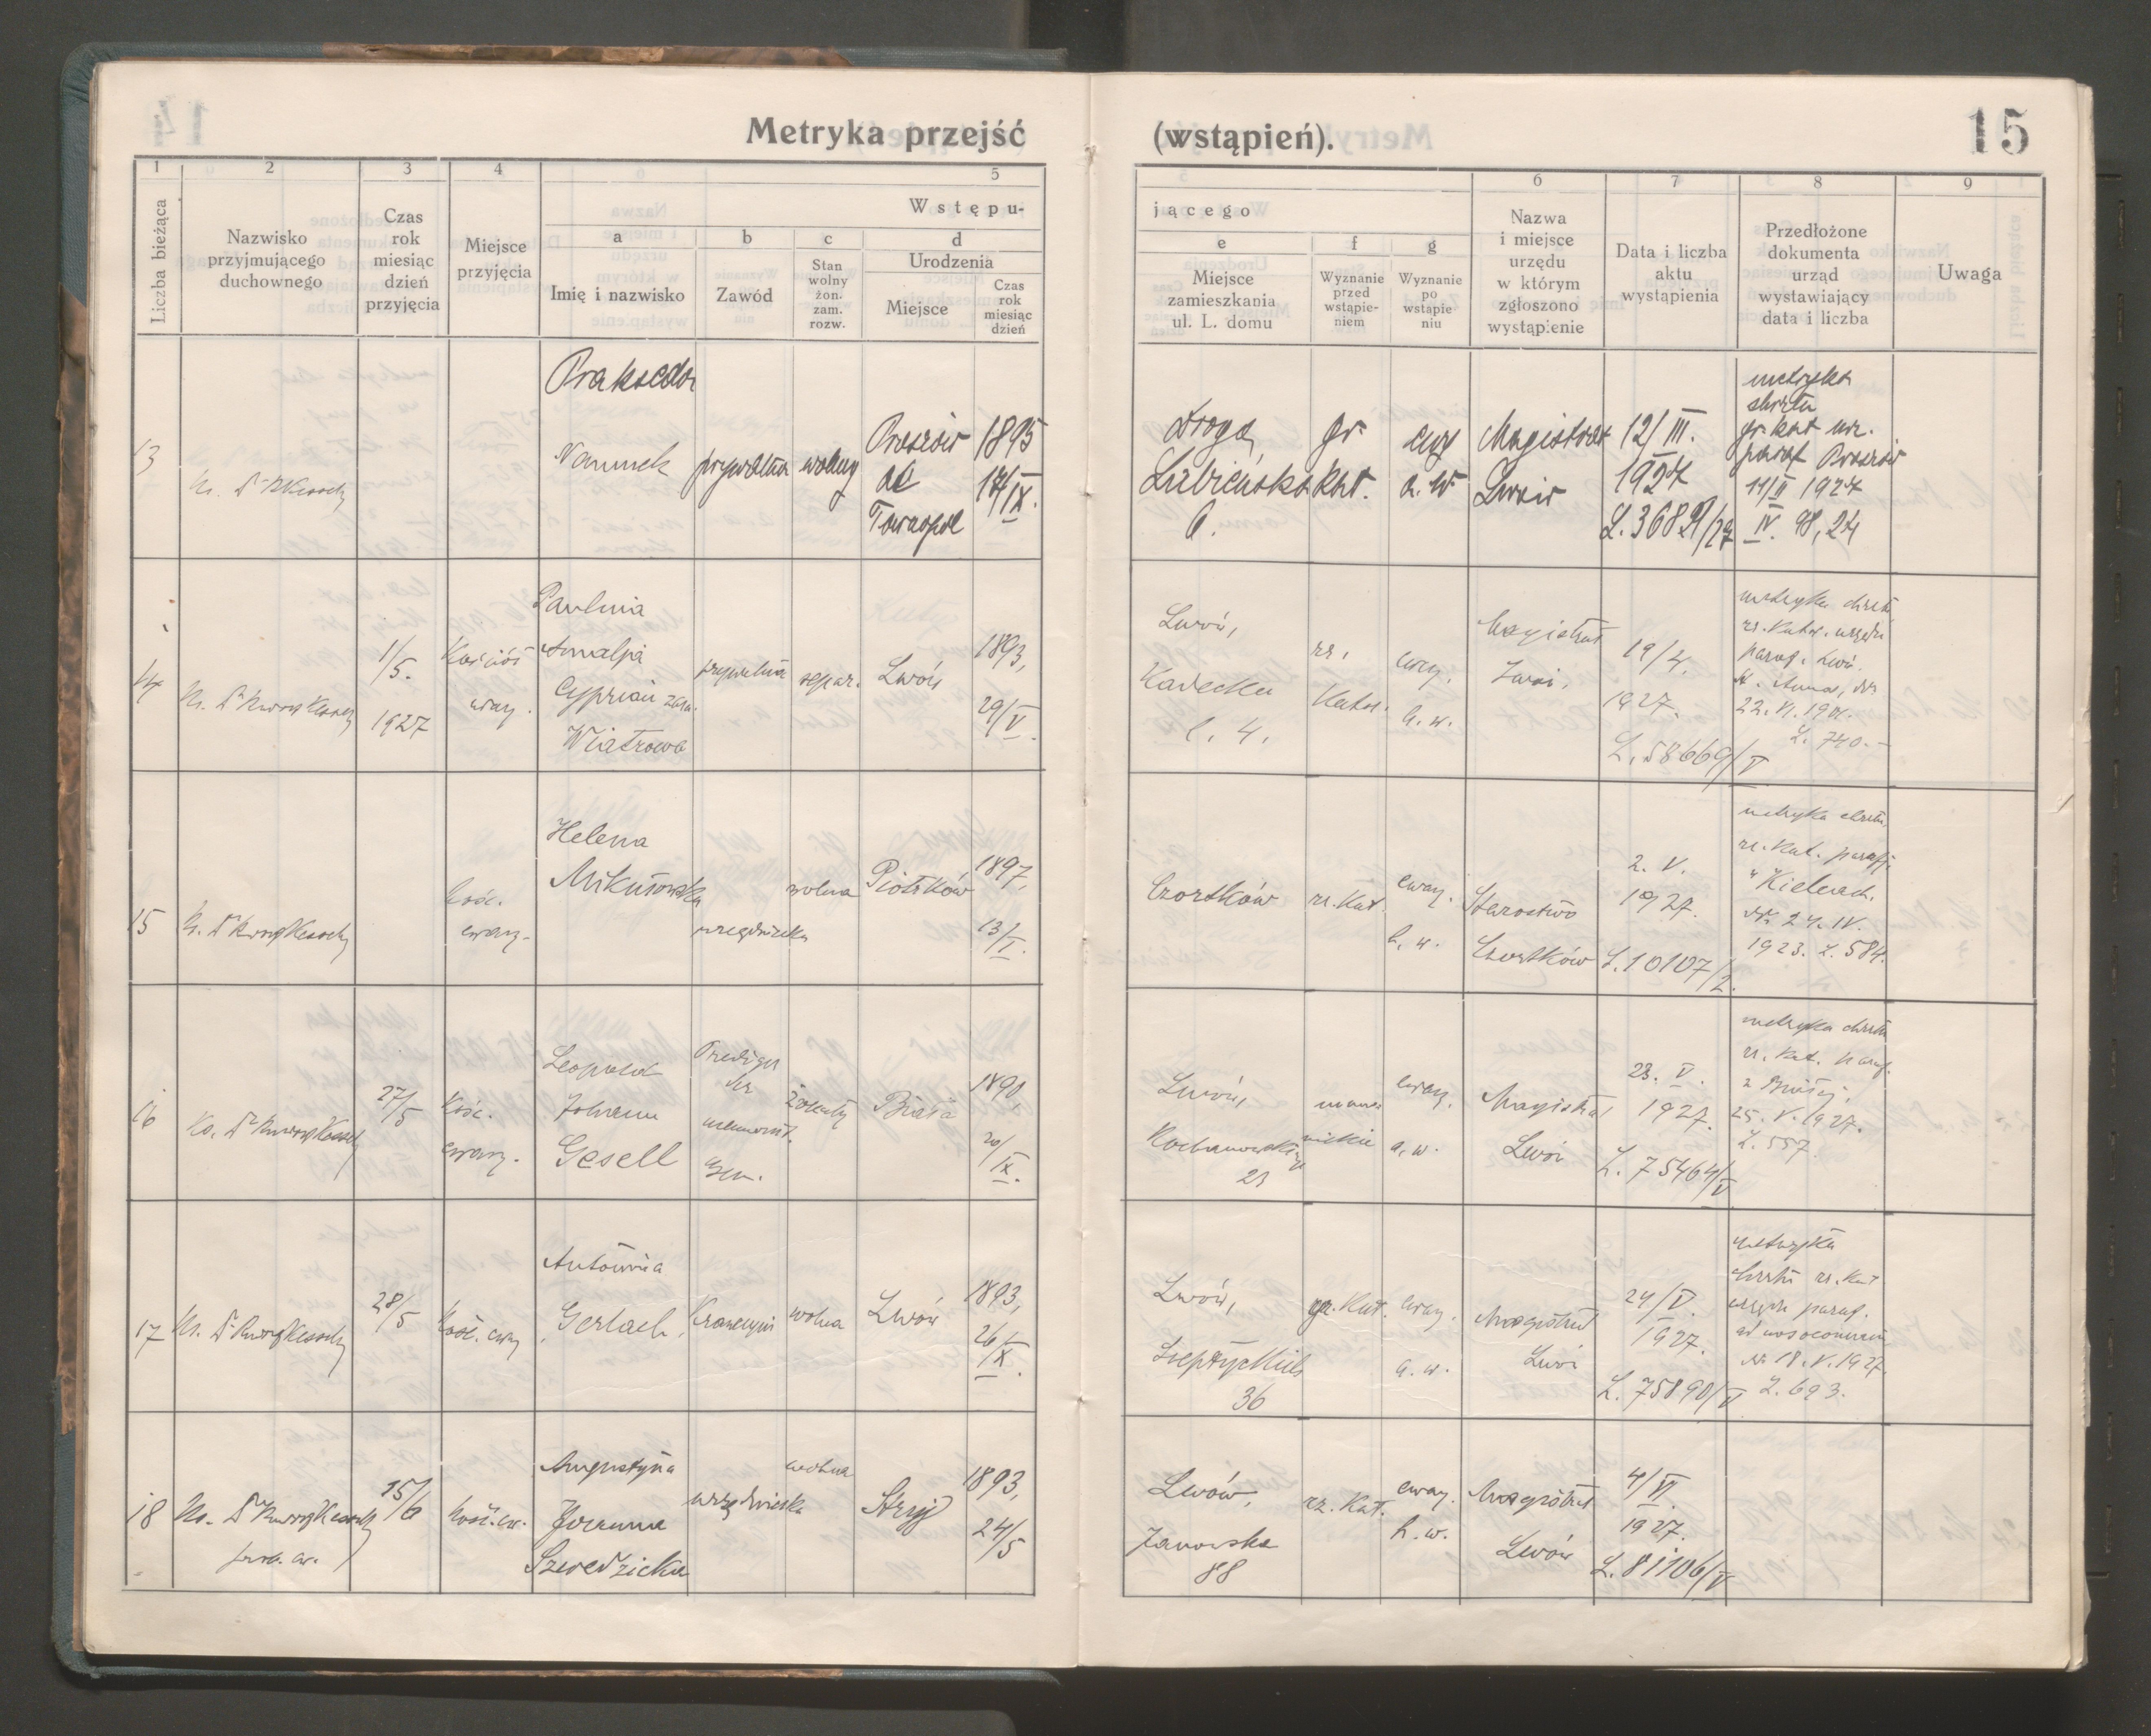 Metryka przejść (wstąpień).
15
1 2 3 4 5
Liczba bieżąca
Nazwisko
przyjmującego
duchownego
Czas
rok
miesiąc
dzień
przyjęcia
Miejsce
przyjęcia
Wstępu-
a b c d
Imię i nazwisko
Zawód
Stan
wolny
żon.
zam.
rozw.
Urodzenia
Miejsce
Czas
rok
miesiąc
dzień
6 7 8 9
jącego
e f g
Miejsce
zamieszkania
ul. L. domu
Wyznanie
przed
wstąpie-
niem
Wyznanie
po
wstąpie
niu
Nazwa
i miejsce
urzędu
w którym
zgłoszono
wystąpienie
Data i liczba
aktu
wystąpienia
Przedłożone
dokumenta
urząd
wystawiający
data i liczba
Uwaga
13
Ks. Dr Kesselring
Prakseda
prywatna
wolny
Tarnopol
1895
17/IX.
Droga
Lubieńska
6.
gr.
kat.
ewg
a. w.
Magistrat
Lwów
12/III.
1927
metryka
chrztu
gr. kat. urz.
paraf.
11/II 1927
IV. 98, 24
14
1/5.
1927
Kościół
ewang.
Paulina
Amalja
Cyprian zam.
Wiatrowa
prywatna
separ.
Lwów
1893,
29/V.
Lwów,
Kadecka
l. 4.
rz.
Katol.
ewang.
a. w.
Magistrat
Lwów,
19/4.
1927.
L. 58669/V
metryka chrztu
rz. katol. urzędu
paraf. Lwów.
św. Anna, dn.
L. 740.-
15
Kośc.
ewang.
Helena
Mikułowska
urzędniczka
wolna
Piotrków
1897,
13/I.
Czortków
rz. Kat.
ewang.
h. w.
Starostwo
Czortków
2. V.
1927.
L. 10107/2.
metryka chrztu,
rz. kat. parafji
w Kielcach,
dn. 24. IV.
1923. L. 584.
16
27/5
Kośc.
ewang.
Leopold
Johann
Gesell
Prediger
der
mennonit.
Gem.
żonaty
Biała
1890,
20/IX.
Lwów,
Kochanowskiego
23
ewang.
a. w.
Magistrat
Lwów
23. V.
1927.
L. 75464/V
metryka chrztu
rz. kat. paraf.
z Białej,
25. V. 1927.
L. 557.
17
28/5
Kośc. ewang
Antonina
Gerlach
Krawczyni
wolna
Lwów
1893,
26/X.
Lwów,
Szeptyckich
36
gr. Kat.
ewang.
a. w.
Magistrat
Lwów
24/V.
1927.
L. 75890/V
metryka
chrztu rz. kat
urzędu paraf.
ad nosocomium
dn. 18. V. 1927.
L. 693.
18
15/6
kośc. ew.
Augustyna
Joanna
Szwedzicka
urzędniczka
wolna
Stryj
1893,
24/5
Lwów,
Janowska
88
rz. Kat.
ewang.
h. w.
Magistrat
Lwów
4/VI.
1927.
L. 81106/V